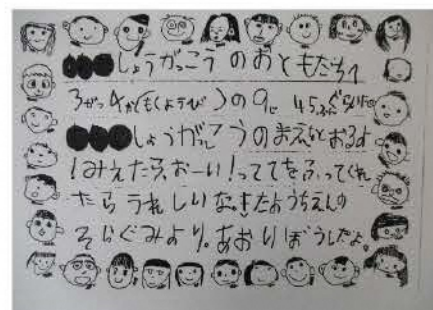 しょうがっこうのおともだちへ
3がつ4か(もくようび)の9じ45ふんぐらいに
しょうがっこうのまえをとおるよ
!みえたら、おーい!っててをふってくれ
たらうれしいな。きたようちえんの
そらぐみより。あおいぼうしだよ。